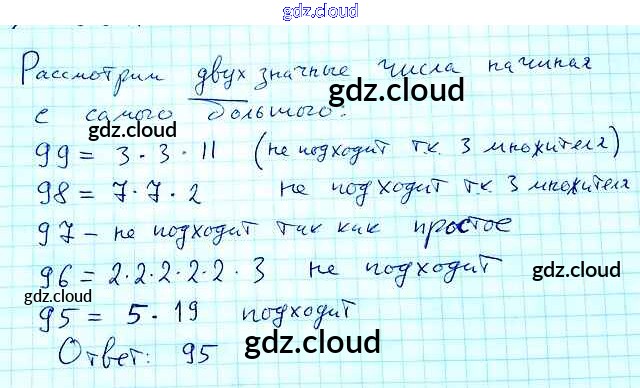 gdz.cloud
Рассмотрим двухзначные числа начиная
с самого большого:
gdz.cloud
gdz.cloud
99 = 3·3·11 (не подходит т.к. 3 множителя)
98 = 7·7·2 не подходит т.к. 3 множителя
97 – не подходит так как простое
96 = 2·2·2·2·2·3 не подходит
gdz.cloud
gdz.cloud
95 = 5·19 подходит
Ответ: 95
gdz.cloud